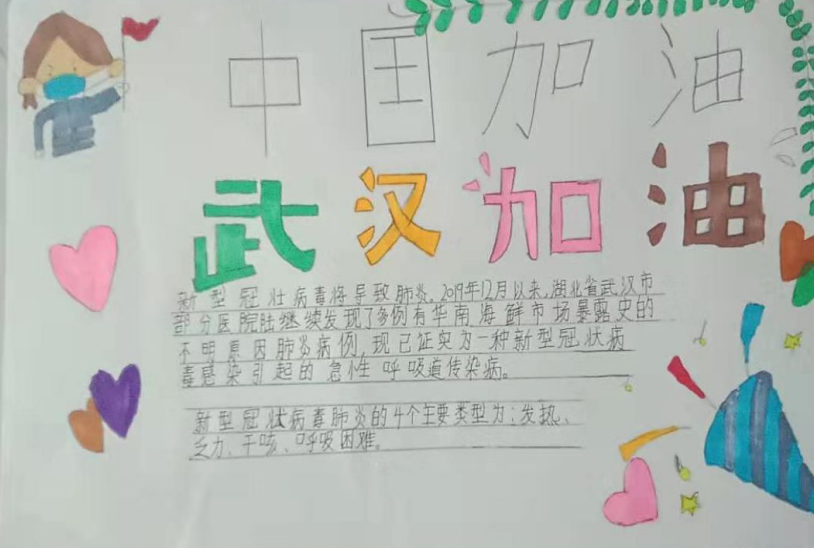 中国加油
武汉加油
新型冠壮病毒将导致肺炎。2019年12月以来,湖北省武汉市
部分医院陆继续发现了多例有华南海鲜市场暴露史的
不明原因肺炎病例,现已证实为一种新型冠状病
毒感染引起的急性呼吸道传染病。
新型冠状病毒肺炎的4个主要类型为:发热、
乏力、干咳、呼吸困难。